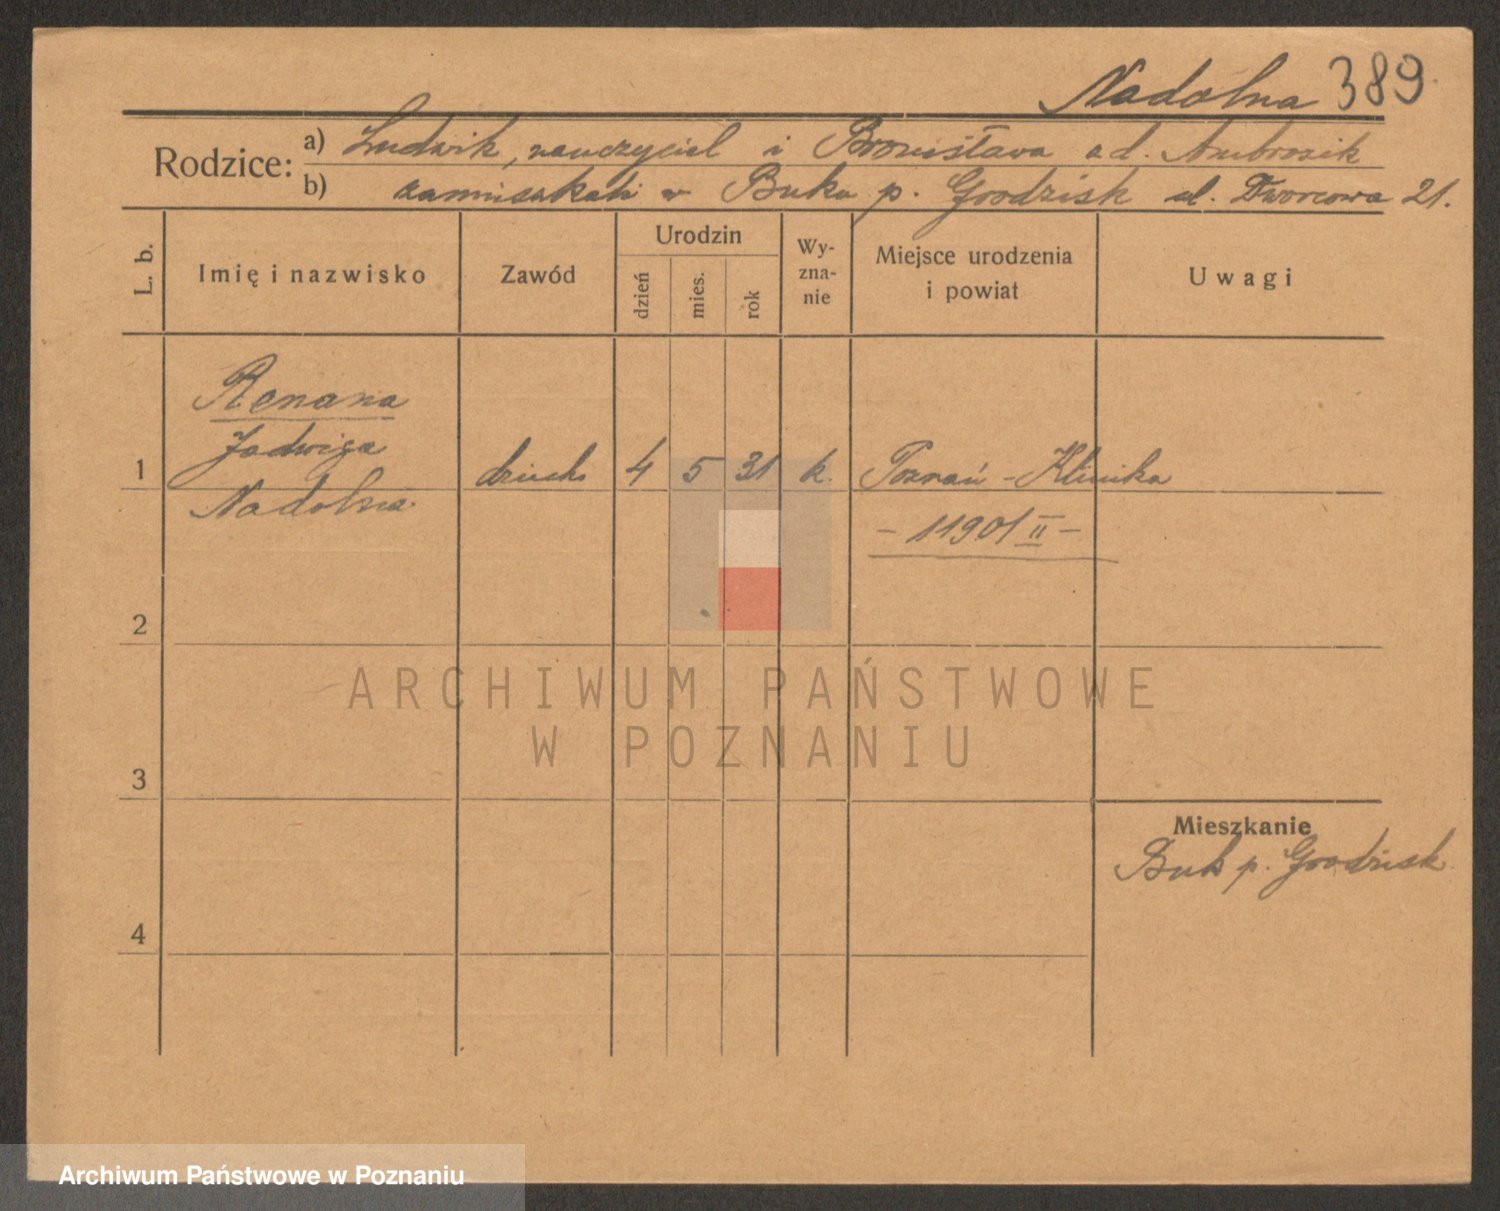 Nadolna 389
Rodzice: a) Ludwik, nauczyciel i Bronisława od. Ambrozik
b) zamieszkali w Buku p. Grodzisk ul. Dworcowa 21.
L. b.
Imię i nazwisko
Zawód
Urodzin
dzień
mies.
rok
Wy-
zna-
nie
Miejsce urodzenia
i powiat
Uwagi
Renana
Jadwiga
Nadolna
1
4 5 31 k. Poznań - Klinika
- 1190/II -
2
3
4
Mieszkanie
Buk p. Grodzisk
ARCHIWUM PAŃSTWOWE
W POZNANIU
Archiwum Państwowe w Poznaniu